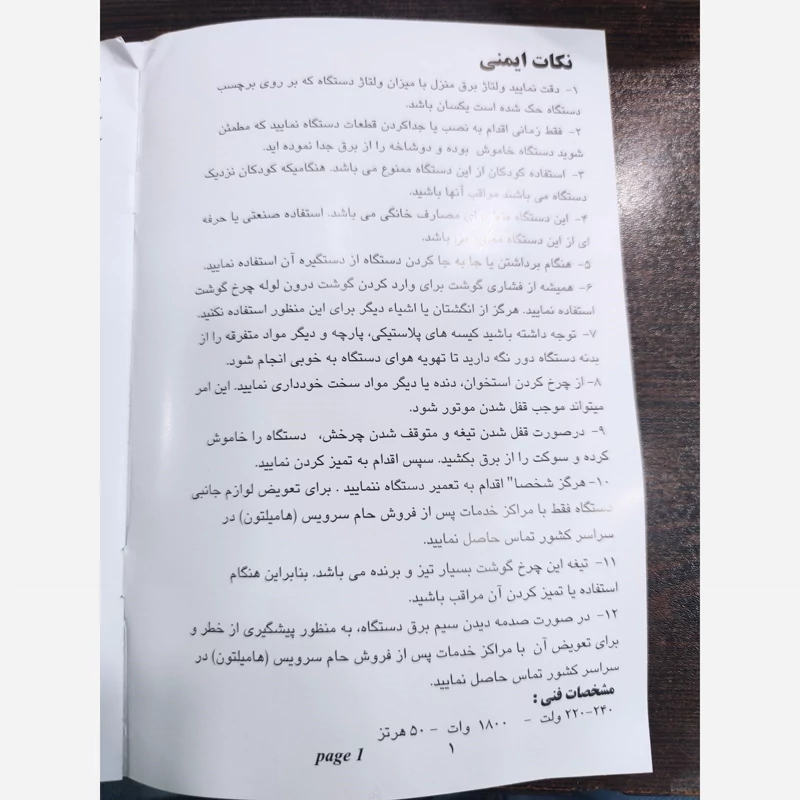 نکات ایمنی
۱- دقت نمایید ولتاژ برق منزل با میزان ولتاژ دستگاه که بر روی برچسب
دستگاه حک شده است یکسان باشد.
۲- فقط زمانی اقدام به نصب یا جداکردن قطعات دستگاه نمایید که مطمئن
شوید دستگاه خاموش بوده و دوشاخه را از برق جدا نموده اید.
۳- استفاده کودکان از این دستگاه ممنوع می باشد. هنگامیکه کودکان نزدیک
دستگاه می باشند مراقب آنها باشید.
۴- این دستگاه مصارف خانگی می باشد. استفاده صنعتی یا حرفه
ای از این دستگاه می باشد.
۵- هنگام برداشتن یا جا به جا کردن دستگاه از دستگیره آن استفاده نمایید.
۶- همیشه از فشاری گوشت برای وارد کردن گوشت درون لوله چرخ گوشت
استفاده نمایید. هرگز از انگشتان یا اشیاء دیگر برای این منظور استفاده نکنید.
۷- توجه داشته باشید کیسه های پلاستیکی، پارچه و دیگر مواد متفرقه را از
بدنه دستگاه دور نگه دارید تا تهویه هوای دستگاه به خوبی انجام شود.
۸- از چرخ کردن استخوان، دنده یا دیگر مواد سخت خودداری نمایید. این امر
میتواند موجب قفل شدن موتور شود.
۹- درصورت قفل شدن تیغه و متوقف شدن چرخش، دستگاه را خاموش
کرده و سوکت را از برق بکشید. سپس اقدام به تمیز کردن نمایید.
۱۰- هرگز شخصا" اقدام به تعمیر دستگاه ننمایید . برای تعویض لوازم جانبی
دستگاه فقط با مراکز خدمات پس از فروش حام سرویس (هامیلتون) در
سراسر کشور تماس حاصل نمایید.
۱۱- تیغه این چرخ گوشت بسیار تیز و برنده می باشد. بنابراین هنگام
استفاده یا تمیز کردن آن مراقب باشید.
۱۲- در صورت صدمه دیدن سیم برق دستگاه، به منظور پیشگیری از خطر و
برای تعویض آن با مراکز خدمات پس از فروش حام سرویس (هامیلتون) در
سراسر کشور تماس حاصل نمایید.
مشخصات فنی :
۲۲۰-۲۴۰ ولت - ۱۸۰۰ وات - ۵۰ هرتز
۱
page 1